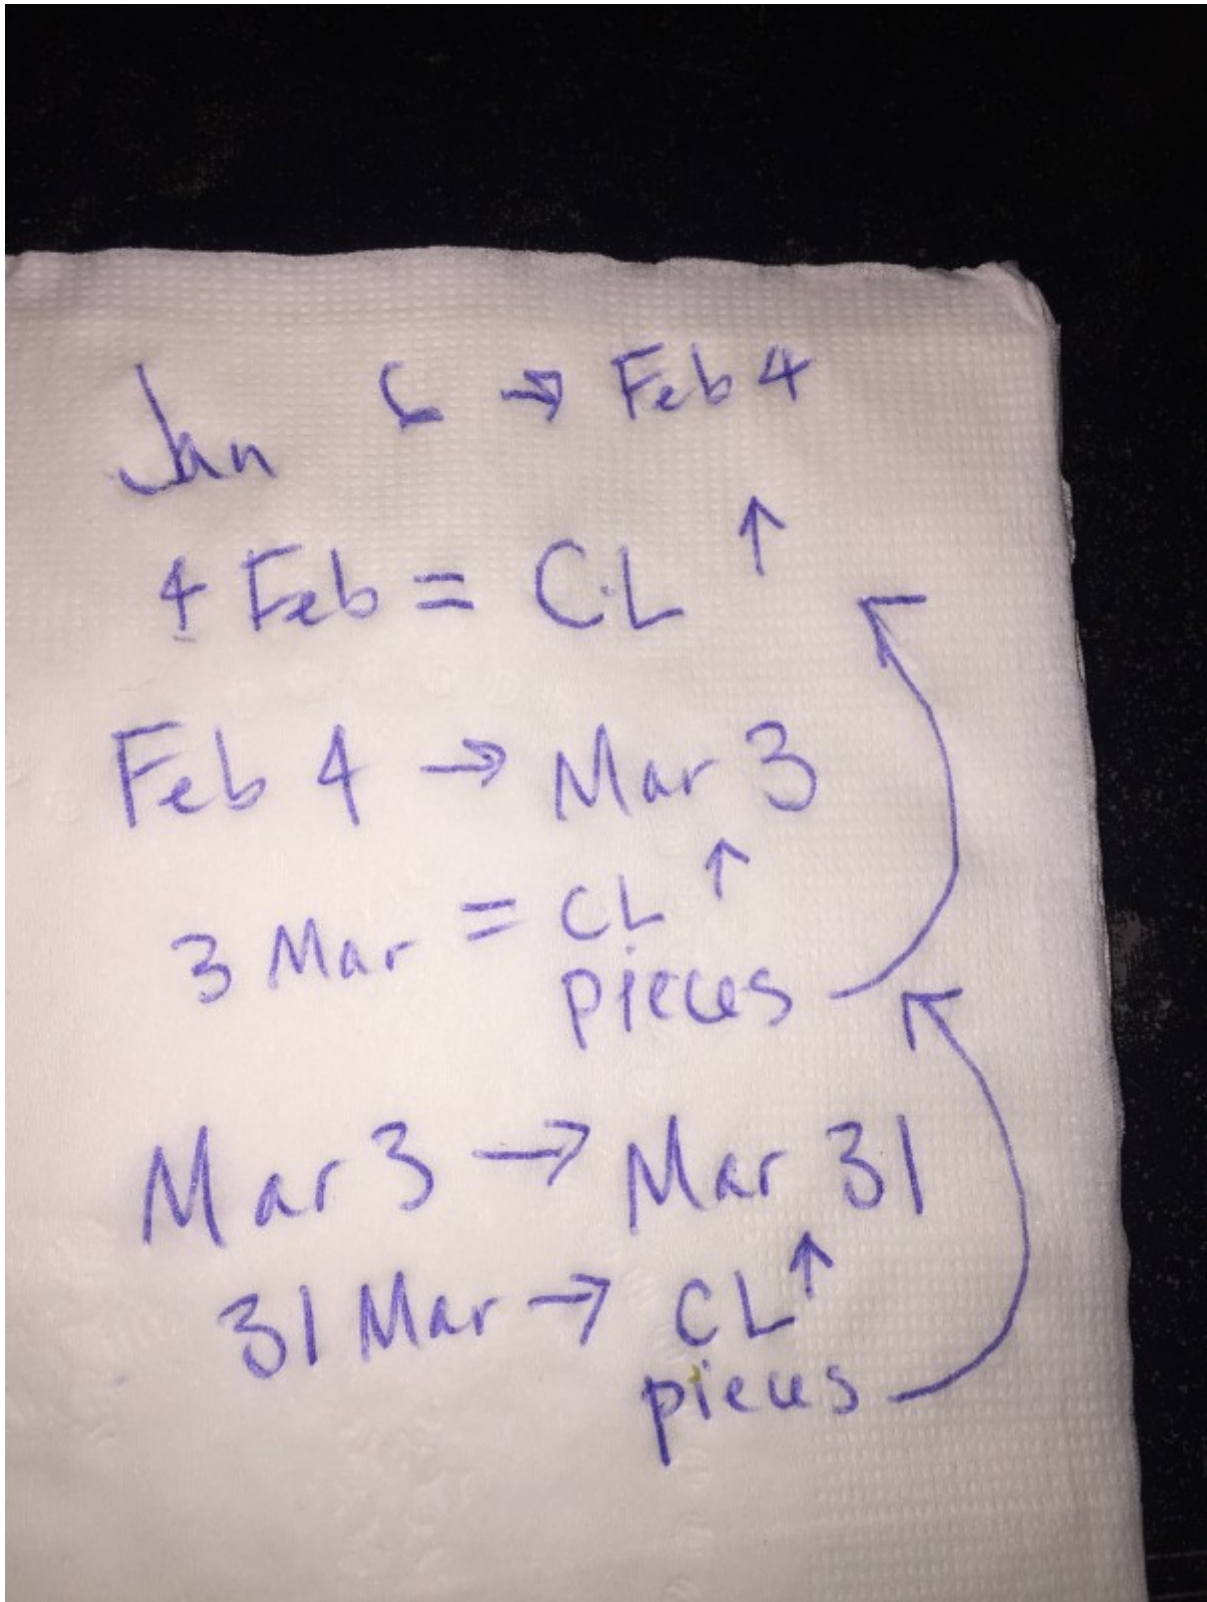 Jan 6 → Feb 4
4 Feb = CL ↑
Feb 4 → Mar 3
3 Mar = CL ↑
pieces
Mar 3 → Mar 31
31 Mar → CL ↑
pieces